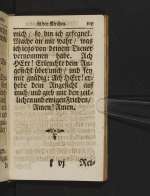 in der Kirchen. 105
mich / so bin ich gesegnet.
Mache an mir wahr / was
ich jetzo von deinem Diener
vernommen habe. Ach
HErr! Erleuchte dein An-
gesicht über mich / und sey
mir gnädig: Ach HErr! er-
hebe dein Angesicht auf
mich und gieb mir den zeit-
lichen und ewigen Frieden/
Amen! Amen.
vj Rei-